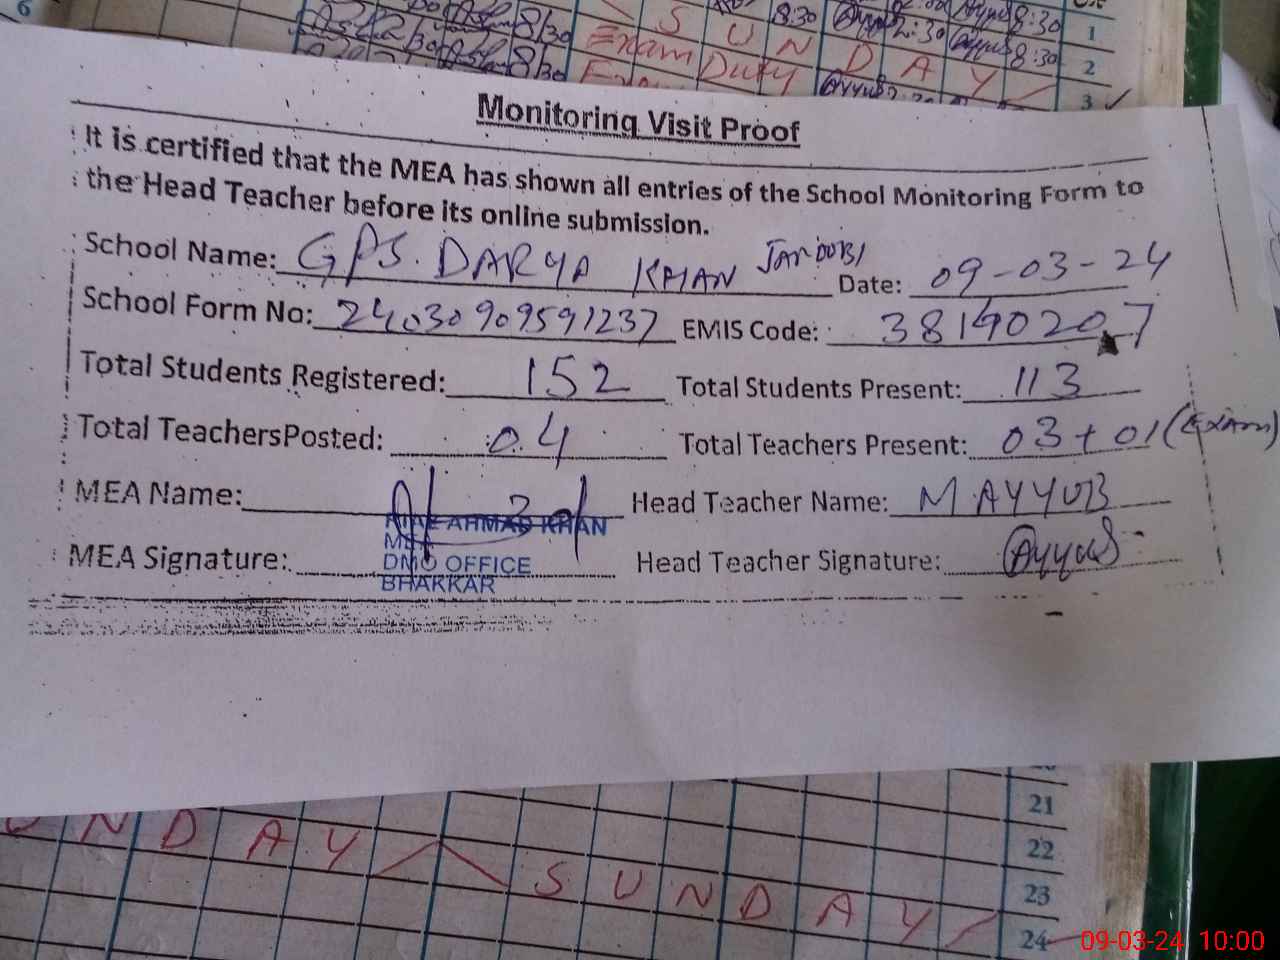 6
8/30
8:30
2:30
8:30
1
8/30
Exam
S U N D A Y
8:30
2
8/30
Duty
3
Monitoring Visit Proof
It is certified that the MEA has shown all entries of the School Monitoring Form to
the Head Teacher before its online submission.
School Name: GPS. DARYA KHAN JANOOBI Date: 09-03-24
School Form No: 24030909591237 EMIS Code: 38190207
Total Students Registered: 152 Total Students Present: 113
Total TeachersPosted: 04 Total Teachers Present: 03+01 (Exam)
MEA Name: Head Teacher Name: M AYYUB
AHMAD KHAN
MEA Signature: Head Teacher Signature: Ayyub
DMO OFFICE
BHAKKAR
21
U N D A Y
22
S U N D A Y
23
24
09-03-24 10:00